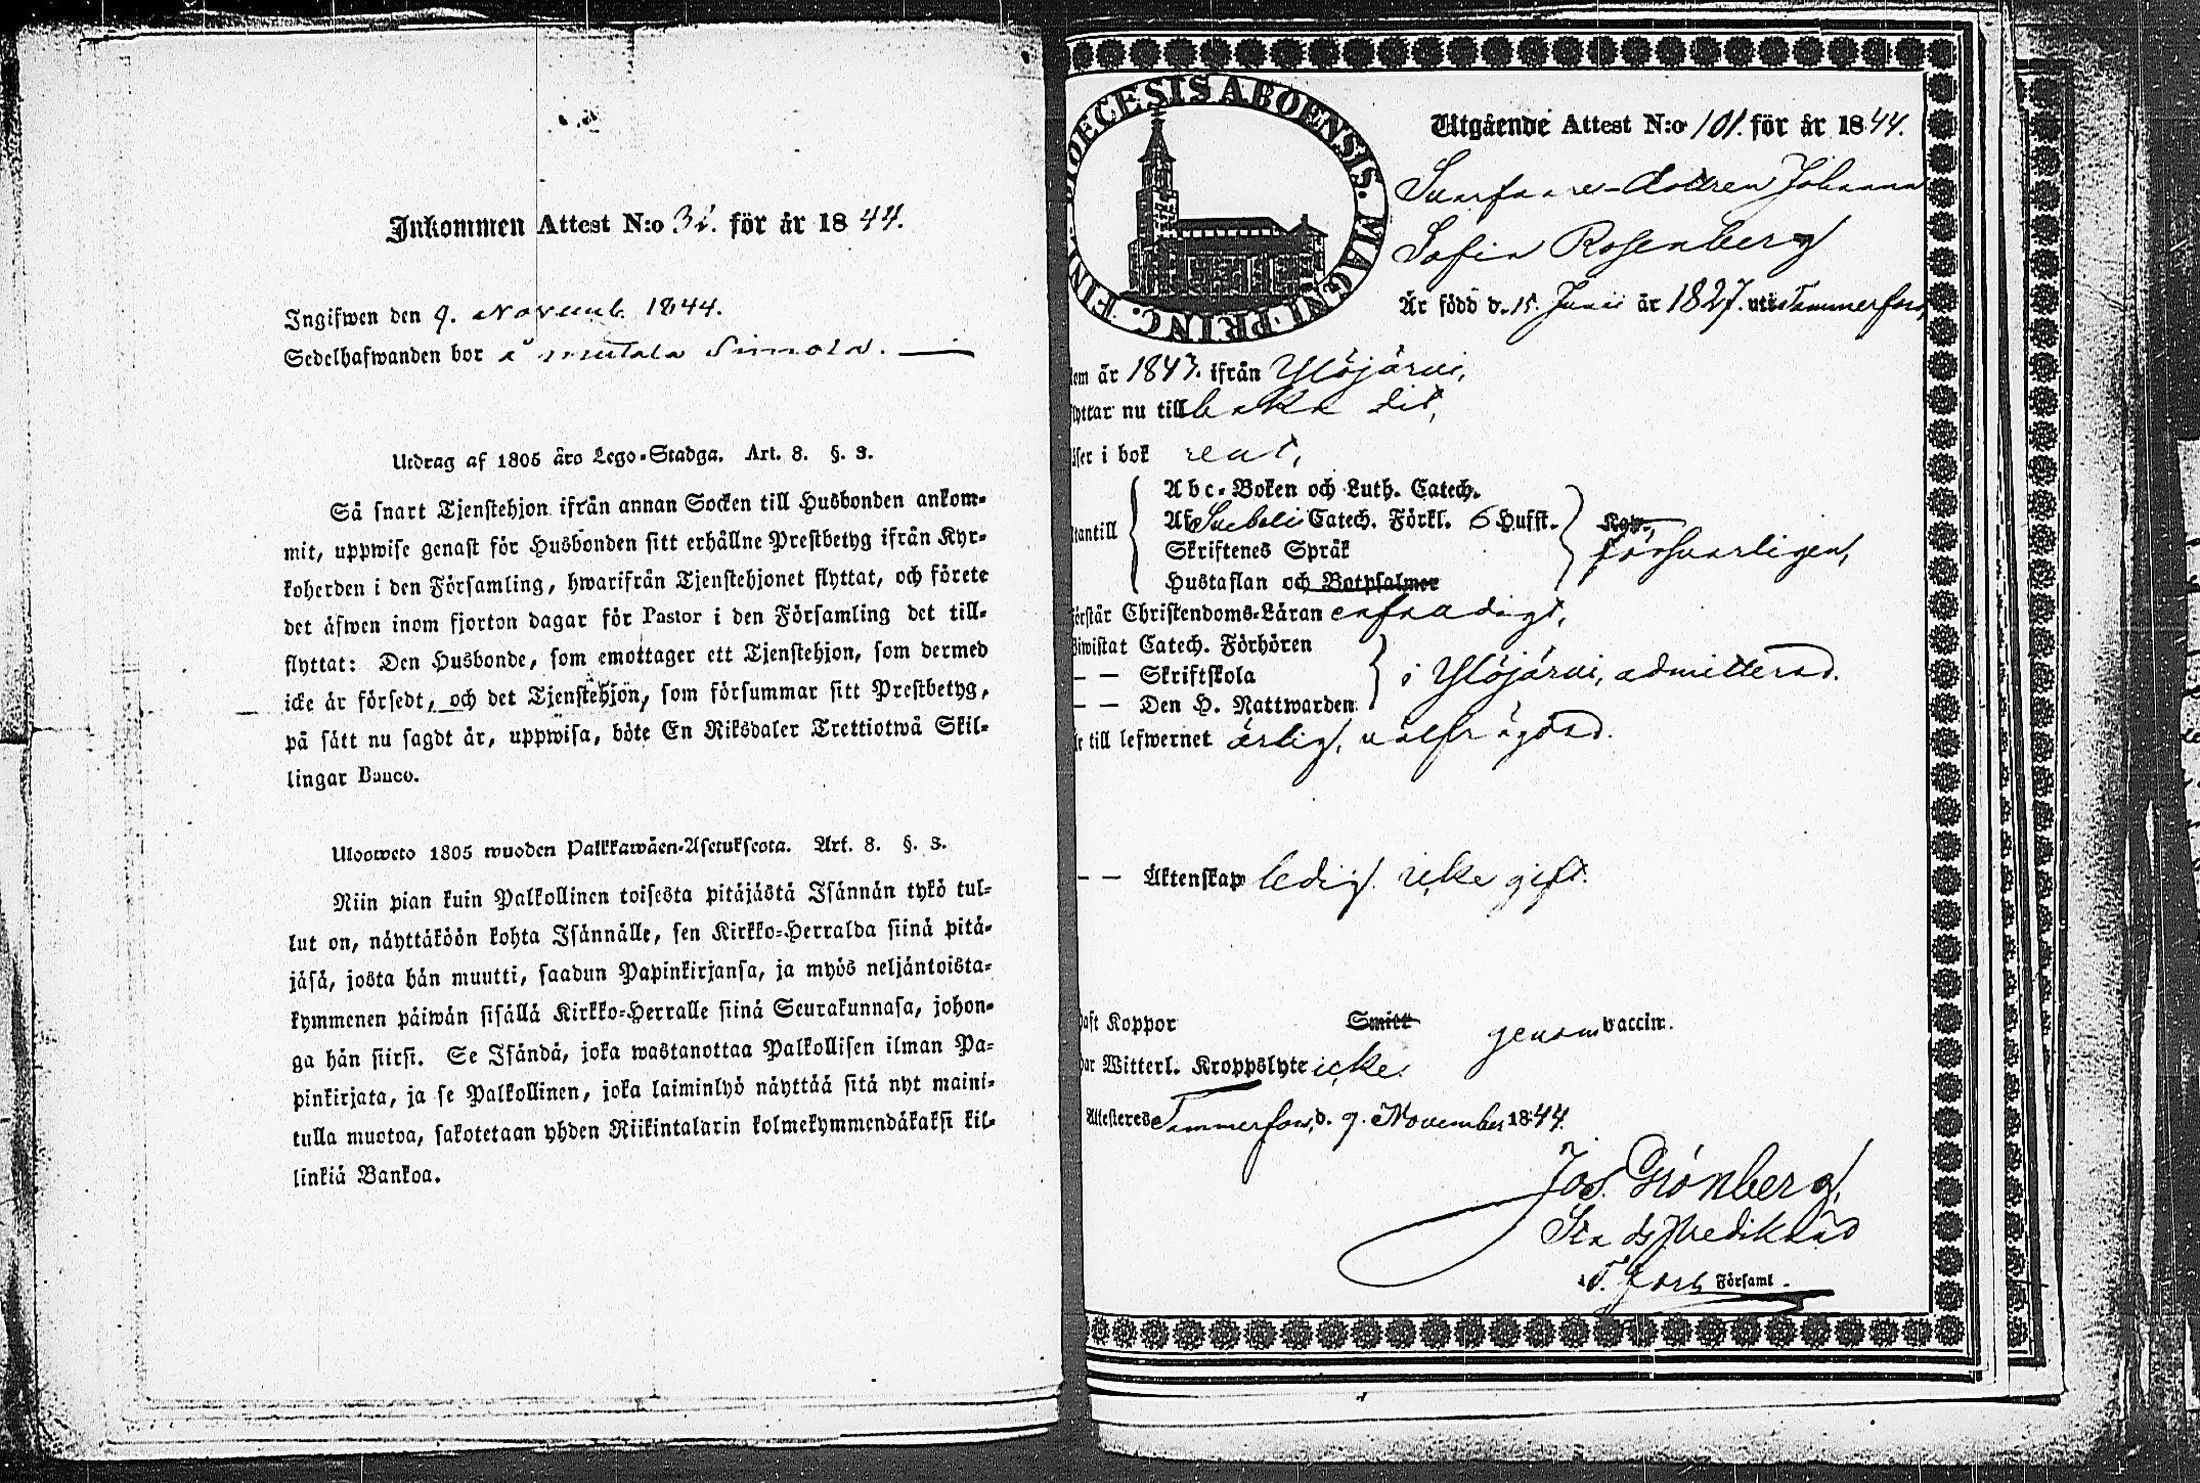 Inkommen Attest N:o 32. för år 1844.
Ingifwen den 9. Novemb. 1844.
Sedelhafwanden bor i Mutala Simola.
Utdrag af 1805 års Lego-Stadga. Art. 8. §. 3.
Så snart Tjenstehjon ifrån annan Socken till Husbonden ankom-
mit, uppwise genast för Husbonden sitt erhållne Prestbetyg ifrån Kyr-
koherden i den Församling, hwarifrån Tjenstehjonet flyttat, och förete
det äfwen inom fjorton dagar för Pastor i den Församling det till-
flyttat: Den Husbonde, som emottager ett Tjenstehjon, som dermed
icke är försedt, och det Tjenstehjon, som försummar sitt Prestbetyg,
på sätt nu sagdt är, uppwisa, böte En Riksdaler Trettiotwå Skil-
lingar Banco.
Ulosweto 1805 wuoden Palkkawäen-Asetuksesta. Art. 8. §. 3.
Niin pian kuin Palkollinen toisesta pitäjästä Isännän tykö tul-
lut on, näyttäköön kohta Isännälle, sen Kirkko-Herralda siinä pitä-
jäsä, josta hän muutti, saadun Papinkirjansa, ja myös neljäntoista-
kymmenen päiwän sisällä Kirkko-Herralle siinä Seurakunnasa, johon-
ga hän siirsi. Se Isändä, joka wastanottaa Palkollisen ilman Pa-
pinkirjata, ja se Palkollinen, joka laiminlyö näyttää sitä nyt maini-
tulla muotoa, sakotetaan yhden Riikintalarin kolmekymmendäkaksi kil-
linkiä Bankoa.
DIOECESIS ABOENSIS. MAGNI. PRINC. FINL.
Utgående Attest N:o 101. för år 1844.
dottren Johanna
Sofia Rosenberg
Är född d. 15. Junii år 1827. uti Tammerfors,
kom år 1843. ifrån Ylöjärvi,
flyttar nu tillbaka dit,
läser i bok rent,
Abc-Boken och Luth. Catech.
Af Svebelii Catech. Förkl. 6 Hufst. Kgw.
utantill Skriftenes Språk försvarligen,
Hustaflan och Botpsalmer
förstår Christendoms-Läran enfaldigt,
Biwistat Catech. Förhören
— — Skriftskola i Ylöjärvi, admitterad.
— — Den H. Nattwarden
är till lefwernet ärlig, välfrägdad.
— — Äktenskap ledig. icke gift.
haft Koppor Smitt genom vaccin.
har Witterl. Kroppslyte icke.
Attesteres Tammerfors, d. 9. November 1844.
Jos. Grönberg,
T. fors Församl.